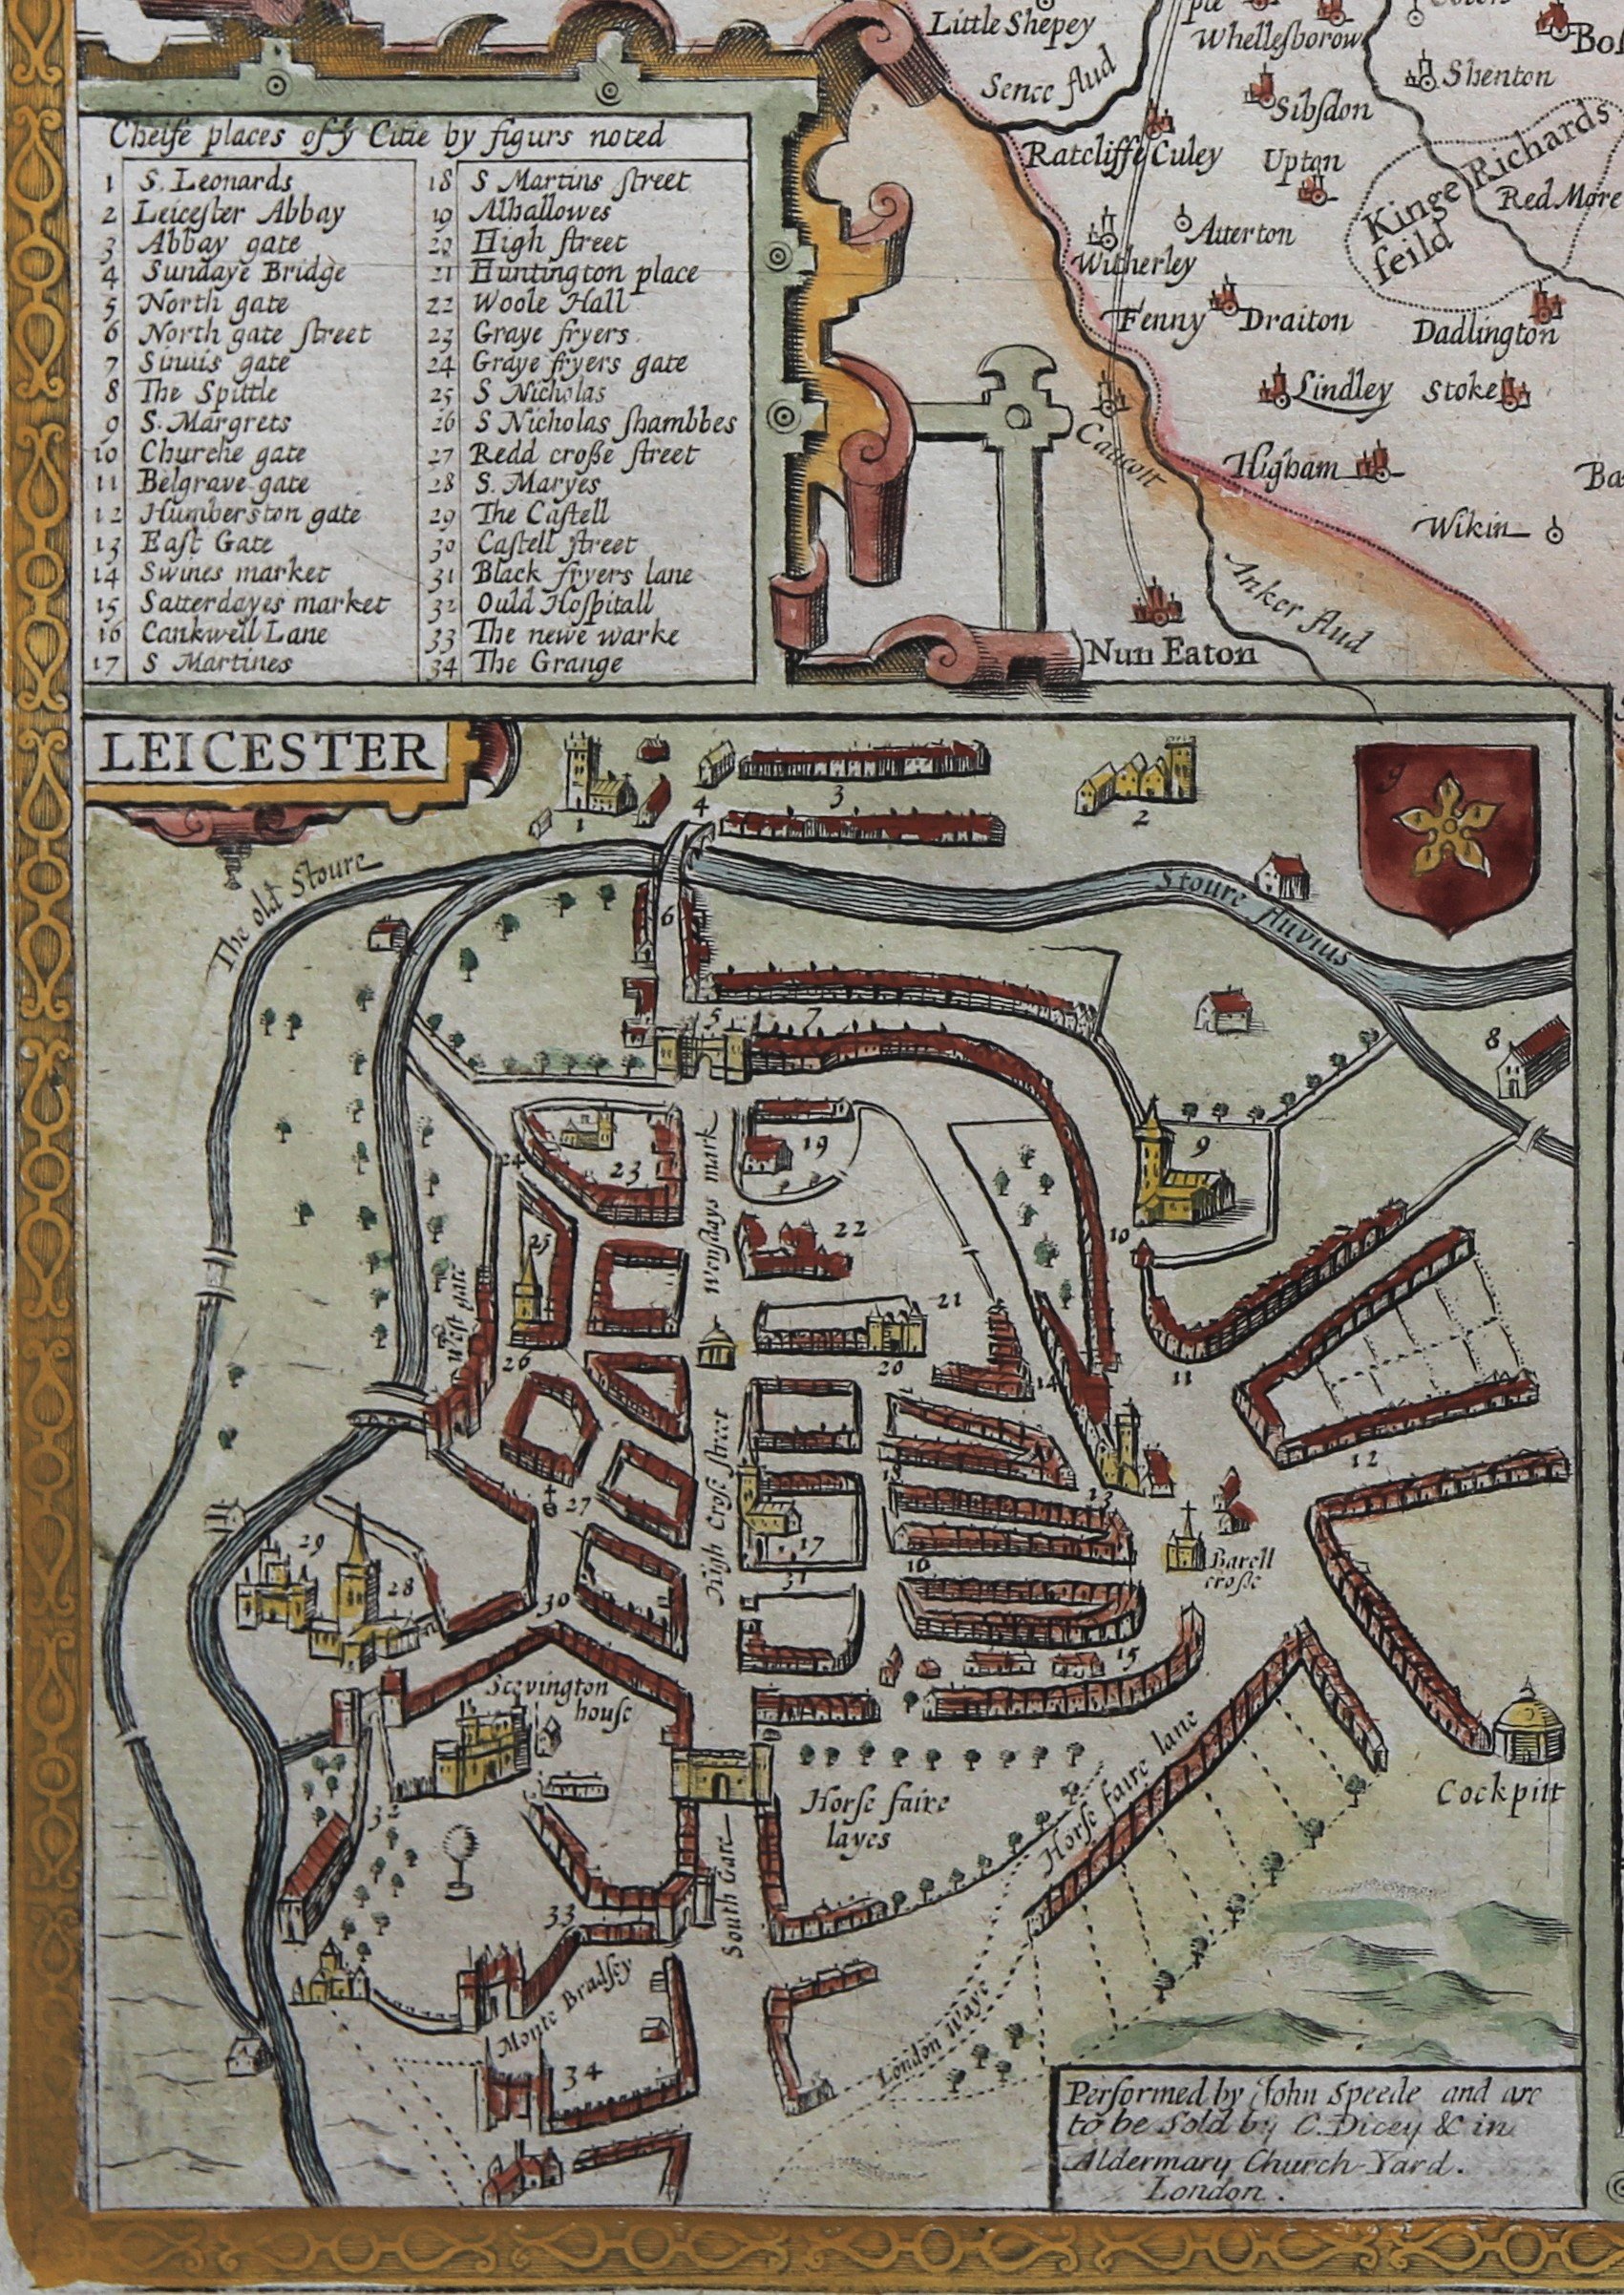 Little Shepey
Sence flud
Whellesborow
Shenton
Sibsdon
Ratcliffe Culey
Upton
Kinge Richards
feild
Red More
Witherley
Atterton
Fenny Draiton
Dadlington
Lindley
Stoke
Higham
Wikin
Anker flud
Nun Eaton
Cheife places of yͤ Citie by figurs noted
1 S. Leonards
2 Leicester Abbay
3 Abbay gate
4 Sundaye Bridge
5 North gate
6 North gate street
7 Sinuis gate
8 The Spittle
9 S. Margrets
10 Churche gate
11 Belgrave gate
12 Humberston gate
13 East Gate
14 Swines market
15 Satterdayes market
16 Cankwell Lane
17 S Martines
18 S Martins street
19 Alhallowes
20 High street
21 Huntington place
22 Woole Hall
23 Graye fryers
24 Graye fryers gate
25 S Nicholas
26 S Nicholas shambbes
27 Redd crosse street
28 S. Maryes
29 The Castell
30 Castell street
31 Black fryers lane
32 Ould Hospitall
33 The newe warke
34 The Grange
LEICESTER
1
4
3
2
The old Stoure
Stoure fluvius
6
5
7
8
9
24
23
Wensdays mark
19
10
25
22
West gate
21
26
20
14
11
12
High Cross street
18
13
27
17
16
29
28
31
Barell
crosse
30
15
Scevington
house
Horse faire
layes
Horse faire lane
Cockpitt
32
South Gate
33
Monte Bradsey
34
London Waye
Performed by John Speede and are
to be Sold by C. Dicey & C in
Aldermary Church Yard.
London.